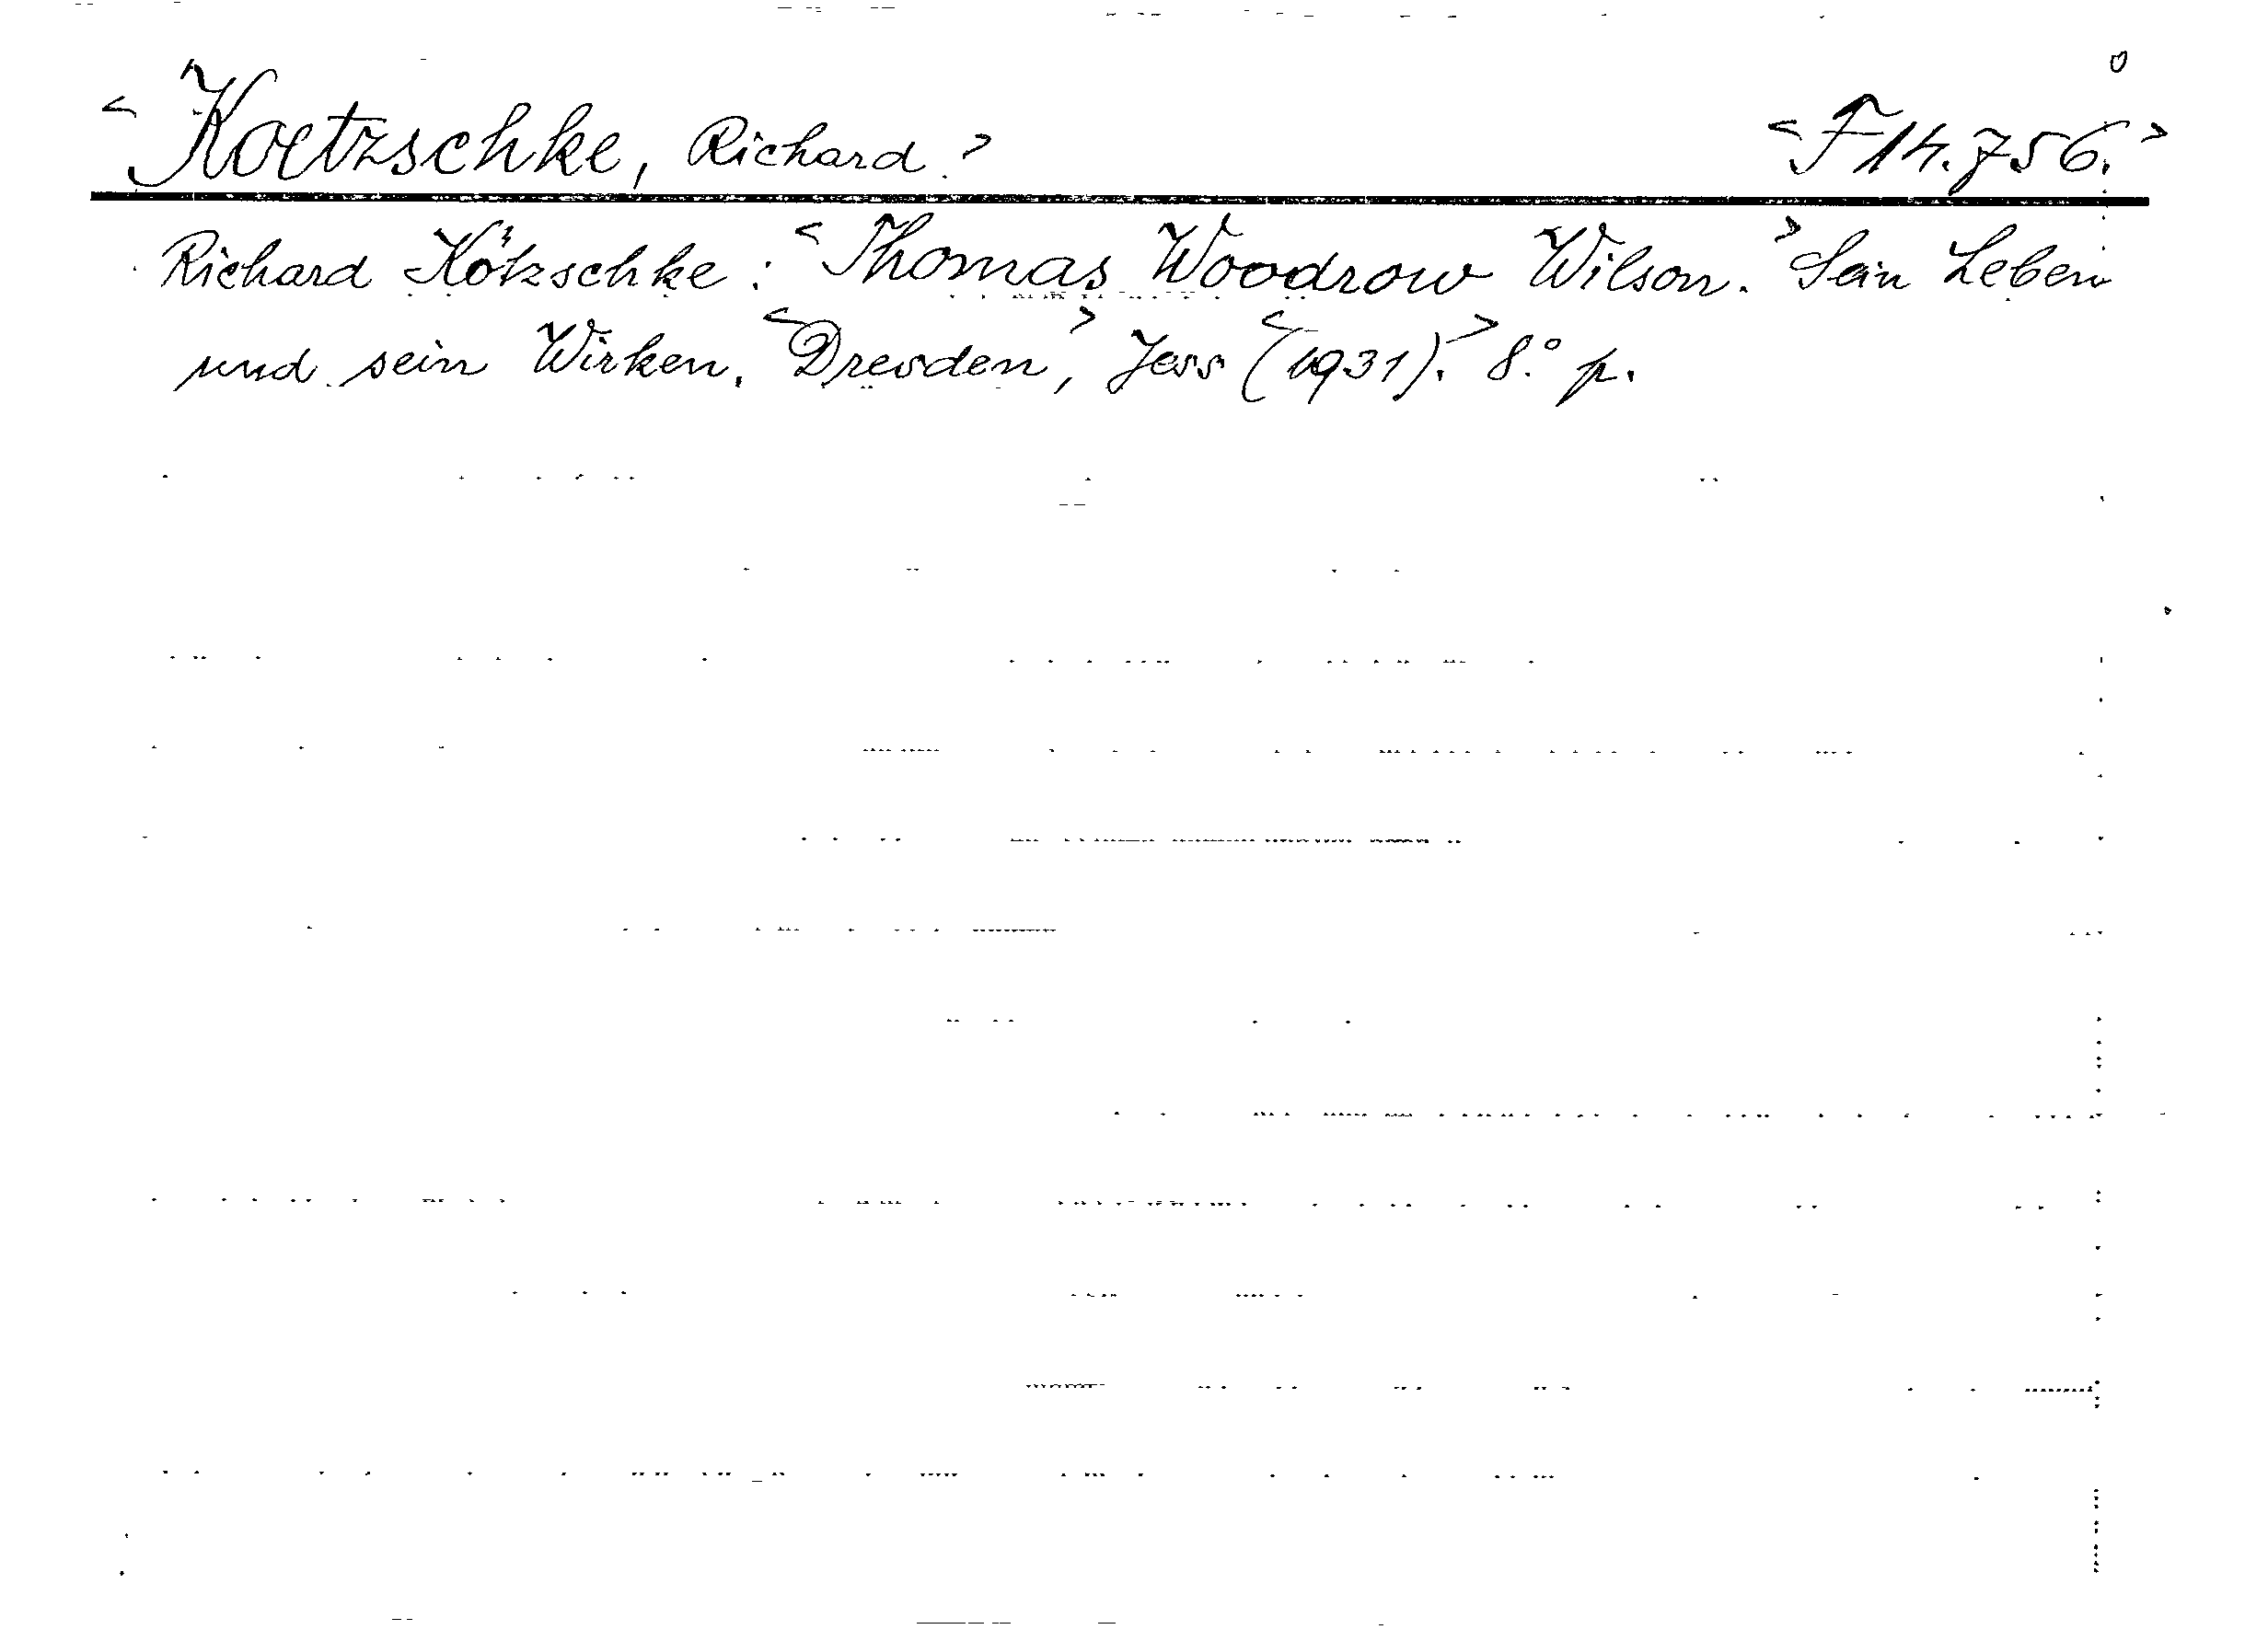 <Koetzschke, Richard.> <F 14.756.>
Richard Kötzschke: <Thomas Woodrow Wilson.> Sein Leben
und sein Wirken. <Dresden>, Jess <(1931).> 8.° p.